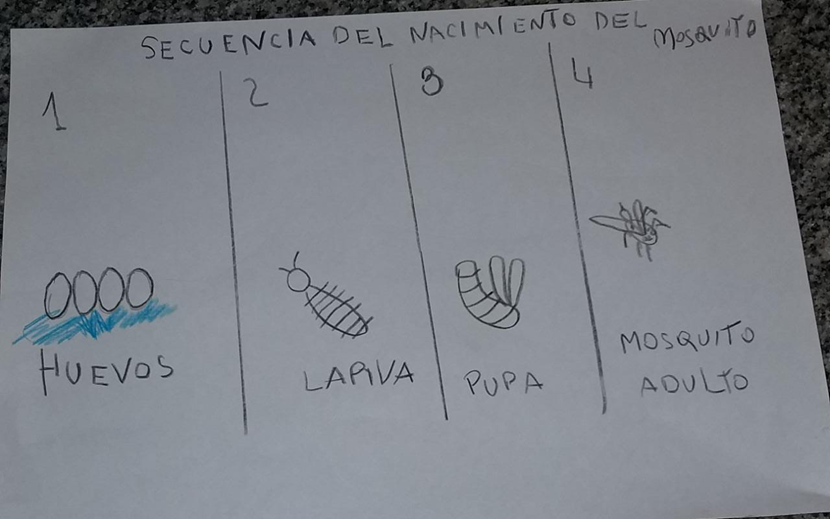 SECUENCIA DEL NACIMIENTO DEL MOSQUITO
1
2
3
4
HUEVOS
LARVA
PUPA
MOSQUITO
ADULTO